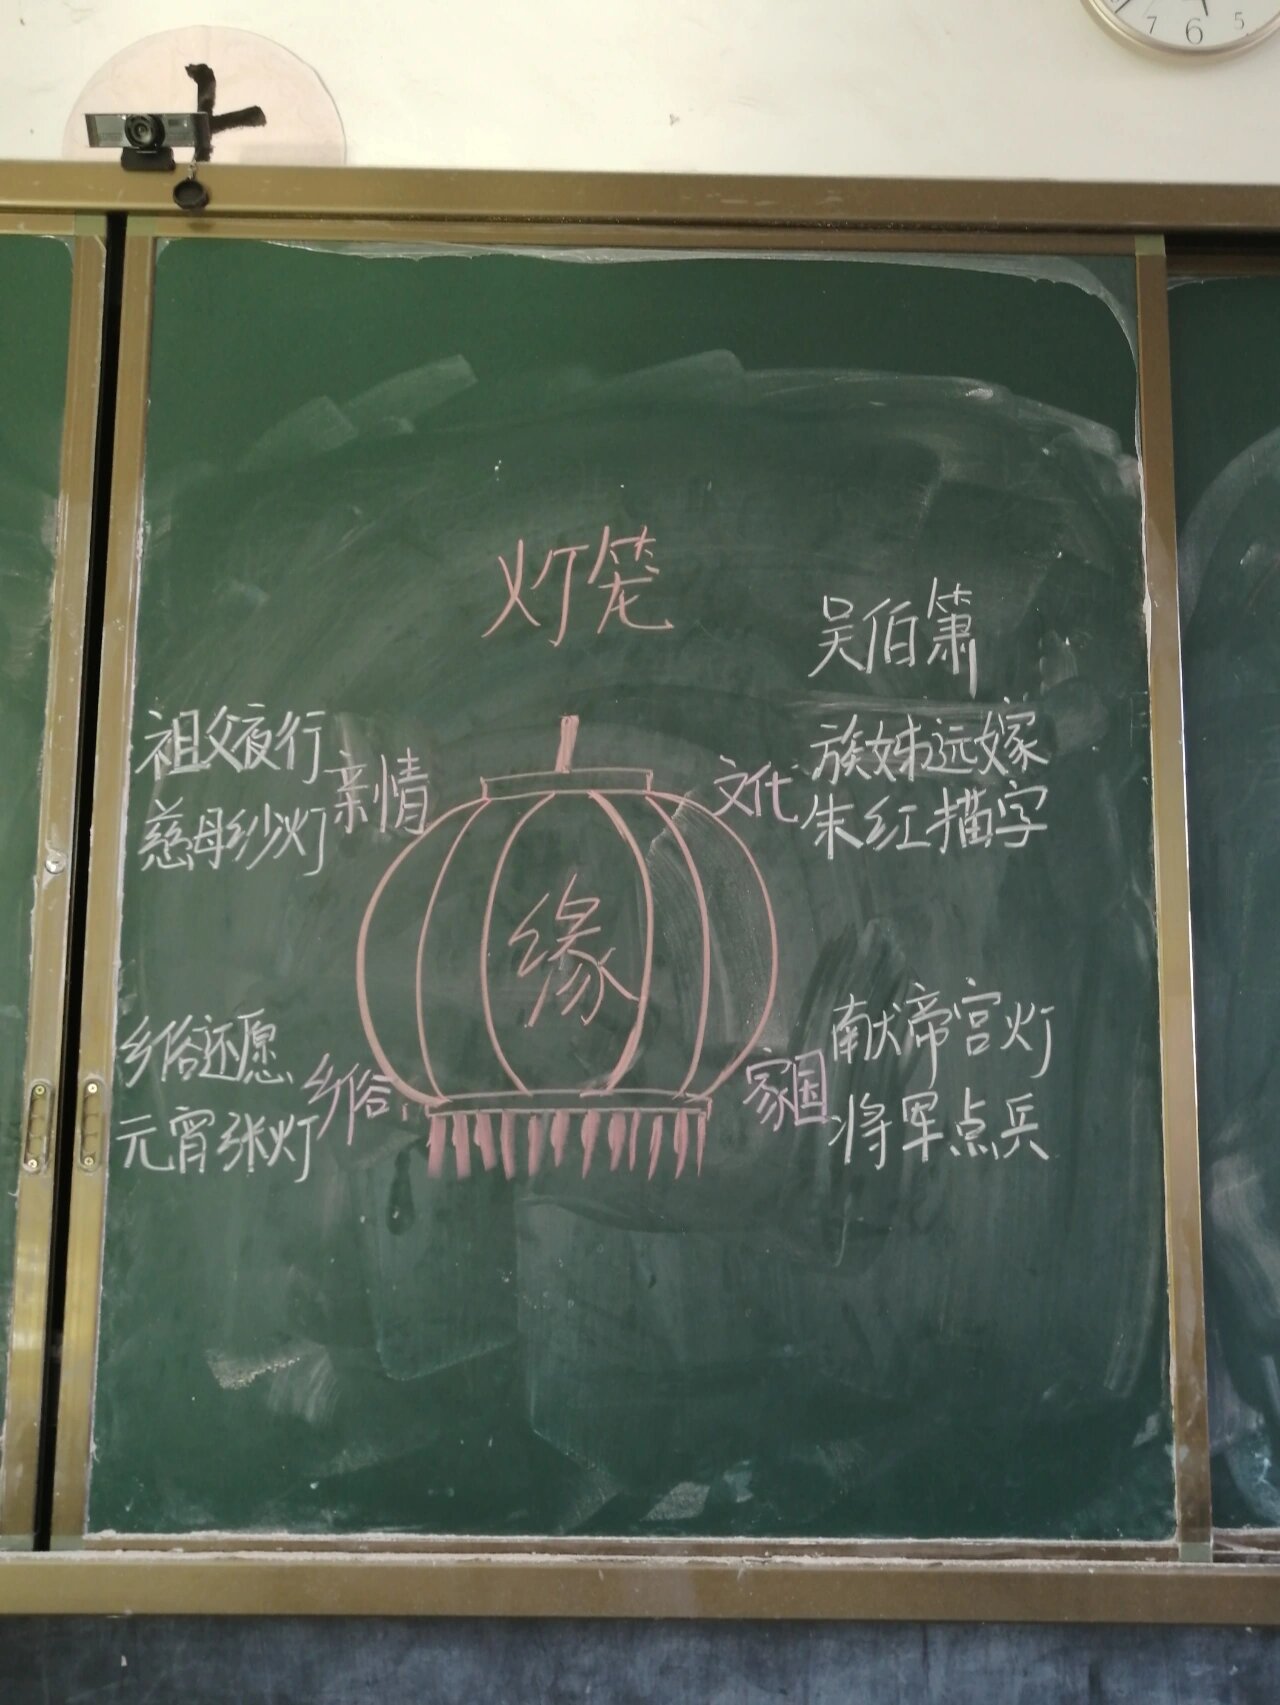 7 6 5
灯笼
吴伯箫
祖父夜行
慈母纱灯
亲情
文化
族姊远嫁
朱红描字
缘
乡俗还愿
元宵张灯
乡俗
家国
献帝宫灯
将军点兵